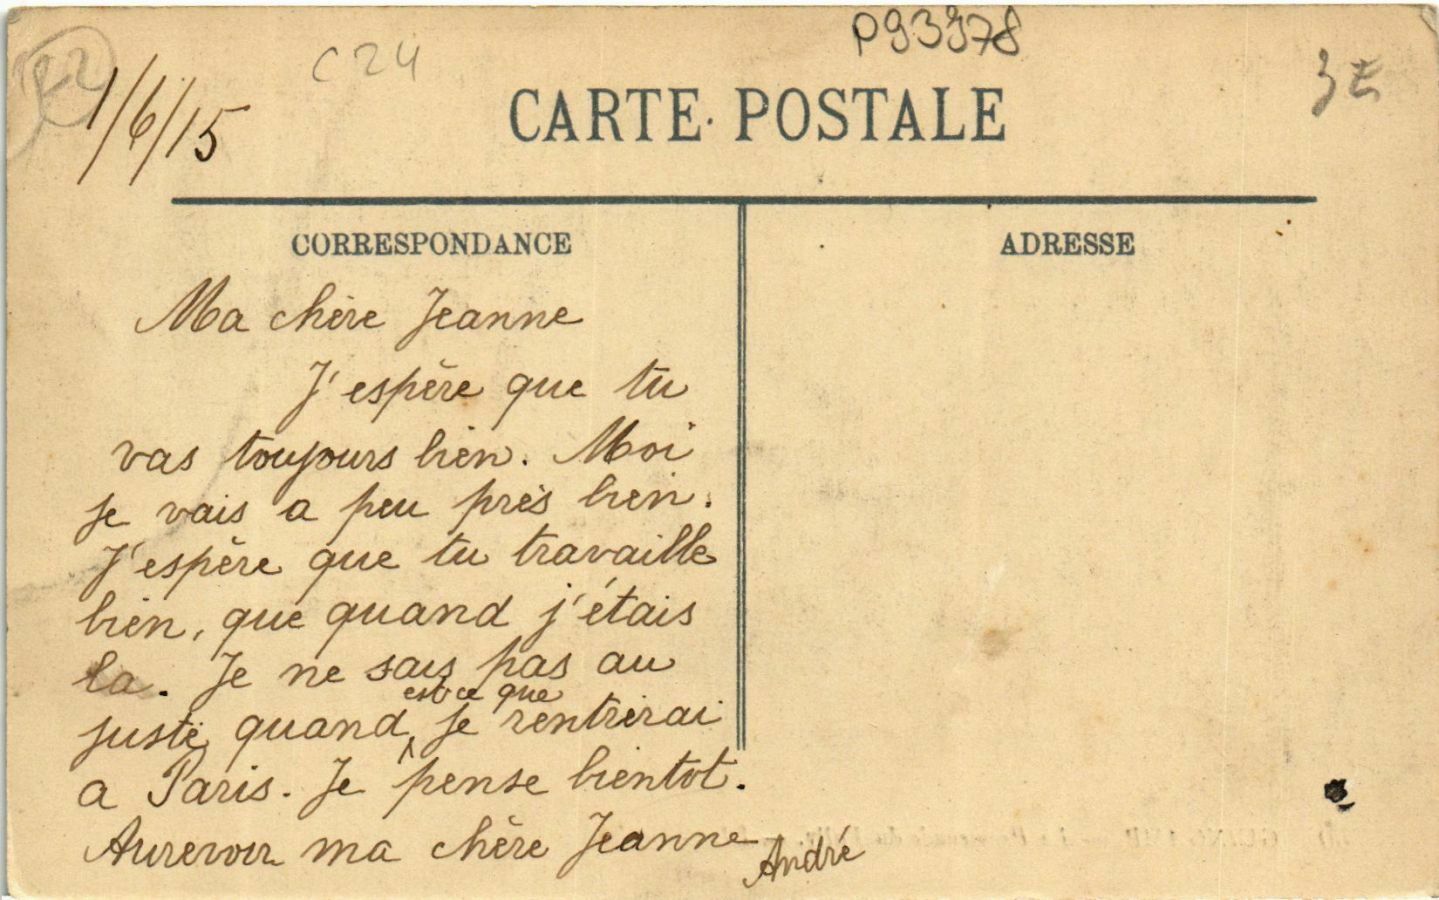 1/6/15
C24
P93978
3E
CARTE POSTALE
CORRESPONDANCE
ADRESSE
Ma chère Jeanne
J'espère que tu
vas toujours bien. Moi
je vais a peu près bien.
J'espère que tu travaille
bien, que quand j'étais
la. Je ne sais pas au
est ce que
juste quand, je rentrerai
a Paris. Je pense bientot.
Aurevoir ma chère Jeanne
André